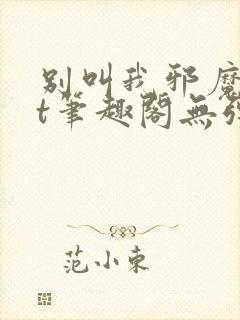 别叫我邪魔
t筆趣閣無弹
范小東